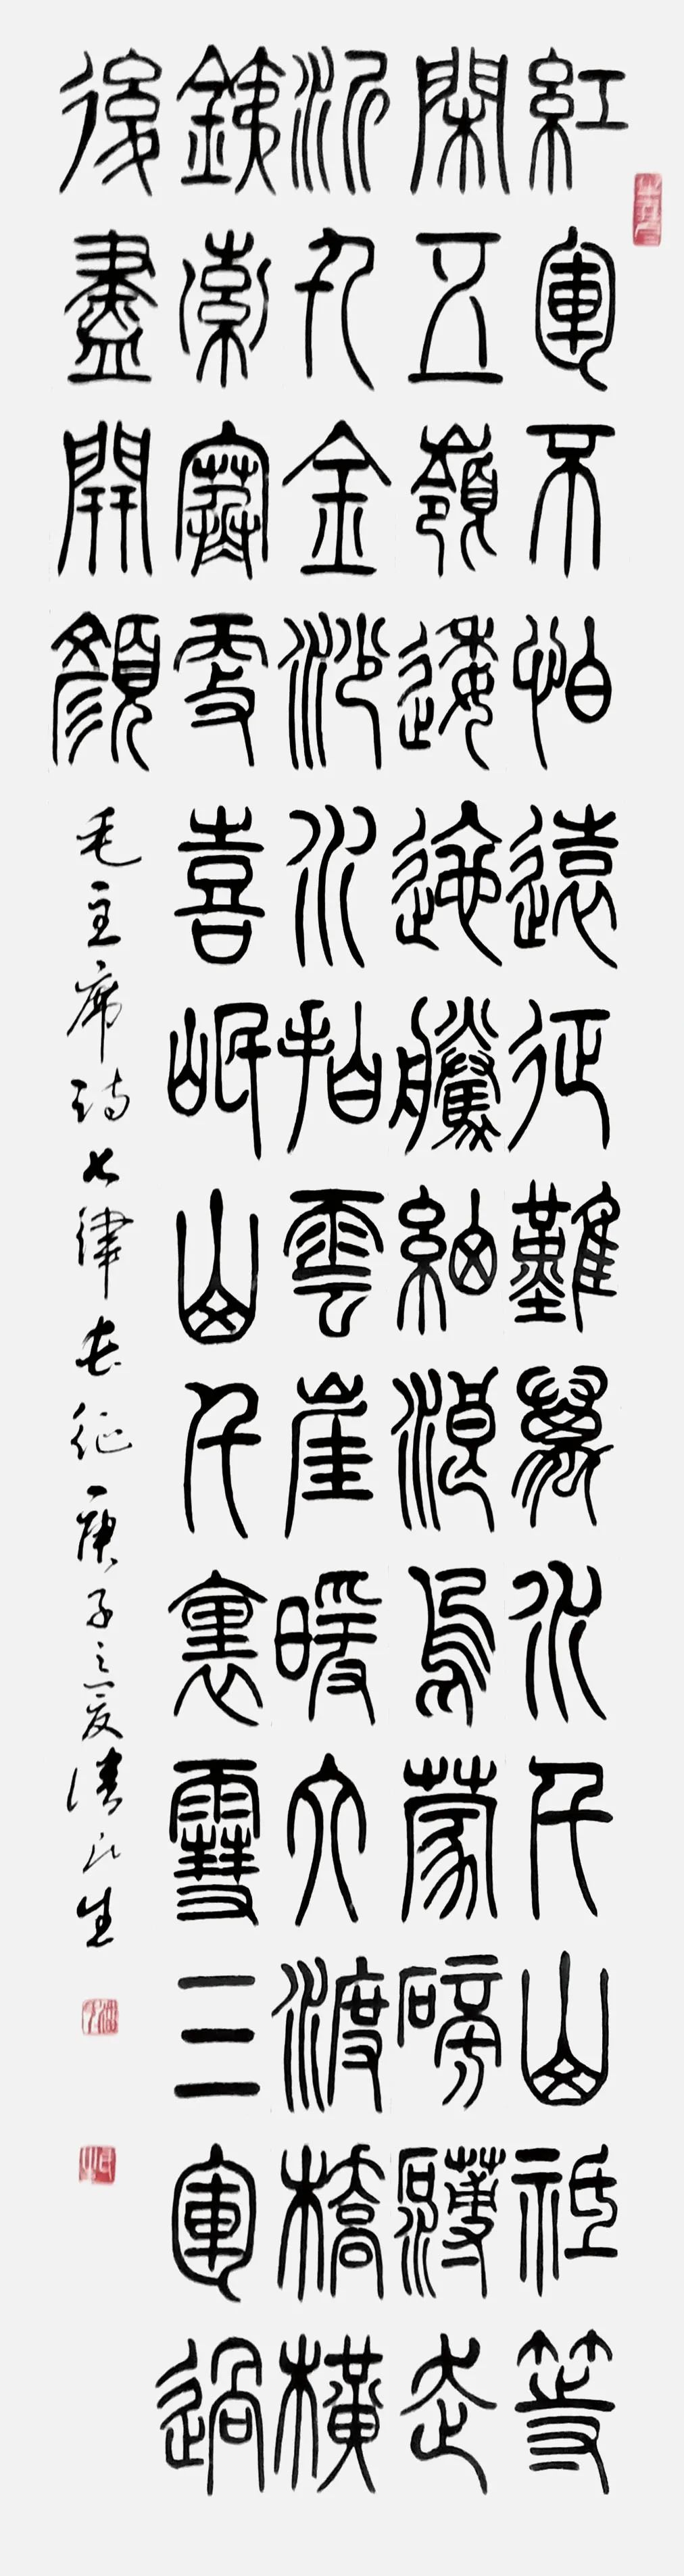 紅軍不怕遠征難萬水千山祇等
閑五嶺逶迤騰細浪烏蒙磅礴走
泥丸金沙水拍雲崖暖大渡橋橫
銕索寒更喜岷山千裏雪三軍過
後盡開顏
毛主席詩七律長征庚子之夏生